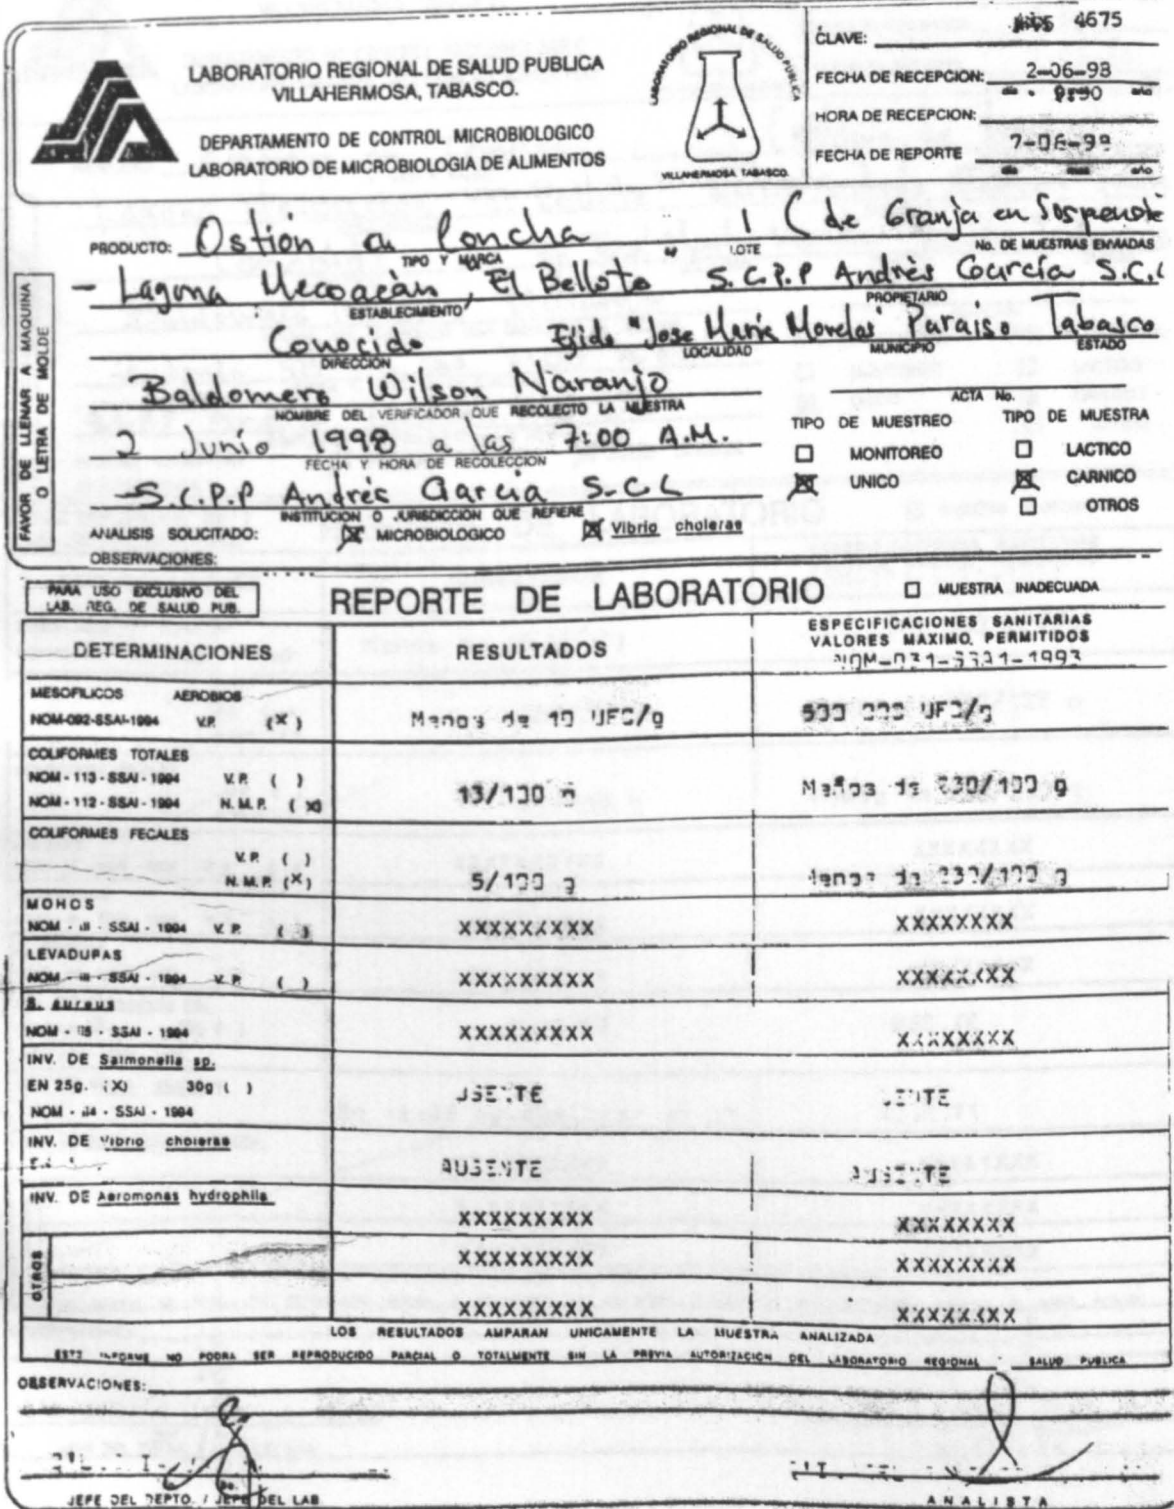 LABORATORIO REGIONAL DE SALUD PUBLICA
VILLAHERMOSA, TABASCO.
DEPARTAMENTO DE CONTROL MICROBIOLOGICO
LABORATORIO DE MICROBIOLOGIA DE ALIMENTOS
LABORATORIO REGIONAL DE SALUD PUBLICA
VILLAHERMOSA TABASCO.
CLAVE: 4675
FECHA DE RECEPCION: 2-06-98
dia mes año
HORA DE RECEPCION:
FECHA DE REPORTE 7-06-98
dia mes año
FAVOR DE LLENAR A MAQUINA
O LETRA DE MOLDE
PRODUCTO: Ostión en Concha 1 (de Granja en Suspensió
TIPO Y MARCA LOTE No. DE MUESTRAS ENVIADAS
- Laguna Mecoacán, "El Bellote" S.C.P.P Andrés García S.C.L
ESTABLECIMIENTO PROPIETARIO
Conocido Ejido "Jose María Morelos" Paraiso Tabasco
DIRECCION LOCALIDAD MUNICIPIO ESTADO
Baldomero Wilson Naranjo
NOMBRE DEL VERIFICADOR QUE RECOLECTO LA MUESTRA ACTA No.
2 Junio 1998 a las 7:00 A.M.
FECHA Y HORA DE RECOLECCION
S.C.P.P Andrés Garcia S.C.L
INSTITUCION O JURISDICCION QUE REFIERE
TIPO DE MUESTREO TIPO DE MUESTRA
MONITOREO LACTICO
UNICO CARNICO
OTROS
ANALISIS SOLICITADO: MICROBIOLOGICO Vibrio cholerae
OBSERVACIONES:
PARA USO EXCLUSIVO DEL
LAB. REG. DE SALUD PUB.
REPORTE DE LABORATORIO MUESTRA INADECUADA
DETERMINACIONES RESULTADOS ESPECIFICACIONES SANITARIAS
VALORES MAXIMO. PERMITIDOS
NOM-031-SSA1-1993
MESOFILICOS AEROBIOS
NOM-092-SSAI-1994 V.P. (X) Menos de 10 UFC/g 500 000 UFC/g
COLIFORMES TOTALES
NOM - 113 - SSAI - 1994 V.P. ( )
NOM - 112 - SSAI - 1994 N.M.P. (X) 13/100 g Menos de 230/100 g
COLIFORMES FECALES
V.P. ( )
N.M.P. (X) 5/100 g Menos de 230/100 g
MOHOS
NOM - III - SSAI - 1994 V.P. ( ) XXXXXXXXX XXXXXXXX
LEVADURAS
NOM - III - SSAI - 1994 V.P. ( ) XXXXXXXXX XXXXXXXX
S. aureus
NOM - 115 - SSAI - 1994 XXXXXXXXX XXXXXXXX
INV. DE Salmonella sp.
EN 25g. (X) 30g ( ) USENTE
NOM - 114 - SSAI - 1994
INV. DE Vibrio cholerae
AUSENTE AUSENTE
INV. DE Aeromonas hydrophila
XXXXXXXXX XXXXXXXX
OTROS
XXXXXXXXX XXXXXXXX
XXXXXXXXX XXXXXXXX
LOS RESULTADOS AMPARAN UNICAMENTE LA MUESTRA ANALIZADA
ESTE INFORME NO PODRA SER REPRODUCIDO PARCIAL O TOTALMENTE SIN LA PREVIA AUTORIZACION DEL LABORATORIO REGIONAL SALUD PUBLICA
OBSERVACIONES:
JEFE DEL DEPTO. / JEFE DEL LAB
ANALISTA